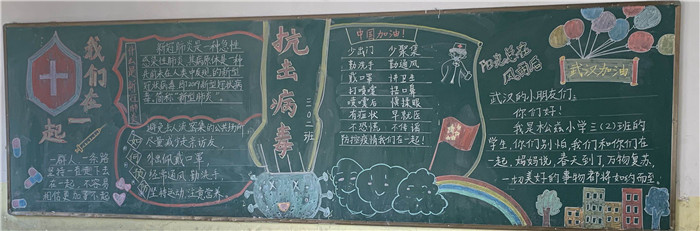 我们在一起
一群人一条路
坚持一直走下去
在一起，不容易
相信更加要不起
什么是新冠肺炎
新冠肺炎是一种急性
感染性肺炎，其病原体是一种
先前未在人类中发现的新型
冠状病毒，即2019新型冠状病
毒，简称“新型肺炎”。
如何预防
避免去人流密集的公共场所
尽量减少走亲访友
外出佩戴口罩
经常通风，勤洗手
坚持运动，注意营养
抗击病毒
三(2)班
中国加油！
少出门 少聚集
勤洗手 勤通风
戴口罩 讲卫生
打喷嚏 捂口鼻
喷嚏后 慎揉眼
有症状 早就医
不恐慌 不传谣
防控疫情我们在一起！
阳光总在
风雨后
武汉加油
武汉的小朋友们：
你们好！
我是松兹小学三(2)班的
学生，你们别怕，我们和你们在
一起，妈妈说，春天到了，万物复苏，
一切美好的事物都将如约而至。